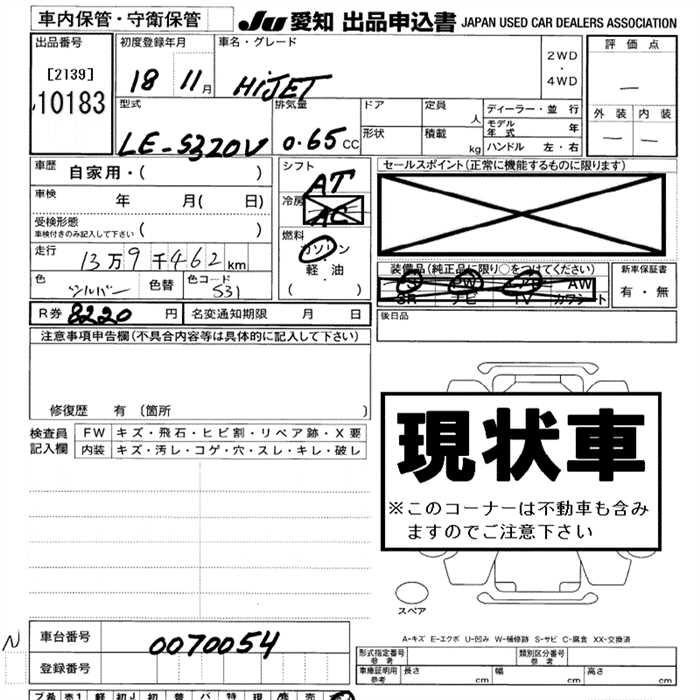 車内保管・守衛保管
JU 愛知 出品申込書 JAPAN USED CAR DEALERS ASSOCIATION
出品番号
[2139]
10183
初度登録年月
18 11月
車名・グレード
HiJET
2WD
・
4WD
評価点
―
外装 内装
― ―
型式
LE-S320V
排気量
0.65 CC
ドア
形状
定員 人
積載 kg
ディーラー・並 行
モデル年式 年
ハンドル 左・右
車歴 自家用・( )
車検 年 月( 日)
受検形態
車検付きのみ記入して下さい ( )
走行 13万9千462km
色 シルバー 色替 色コード S31
シフト
AT
冷房
AC
燃料
ガソリン
・
軽・油
( )
セールスポイント(正常に機能するものに限ります)
装備品(純正品に限り○をつけてください)
PS PW AW
SR ナビ TV カワシート
新車保証書
有・無
後日品
R券 8220円 名変通知期限 月 日
注意事項申告欄(不具合内容等は具体的に記入して下さい)
修復歴 有〔箇所 〕
検査員記入欄
FW キズ・飛石・ヒビ割・リペア跡・X要
内装 キズ・汚レ・コゲ・穴・スレ・キレ・破レ
現状車
※このコーナーは不動車も含み
ますのでご注意下さい
スペア
A-キズ E-エクボ U-凹み W-補修跡 S-サビ C-腐食 XX-交換済
N
車台番号 0070054
登録番号
形式指定番号 参考
類別区分番号 参考
車庫証明用 参考 長さ cm 幅 cm 高さ cm